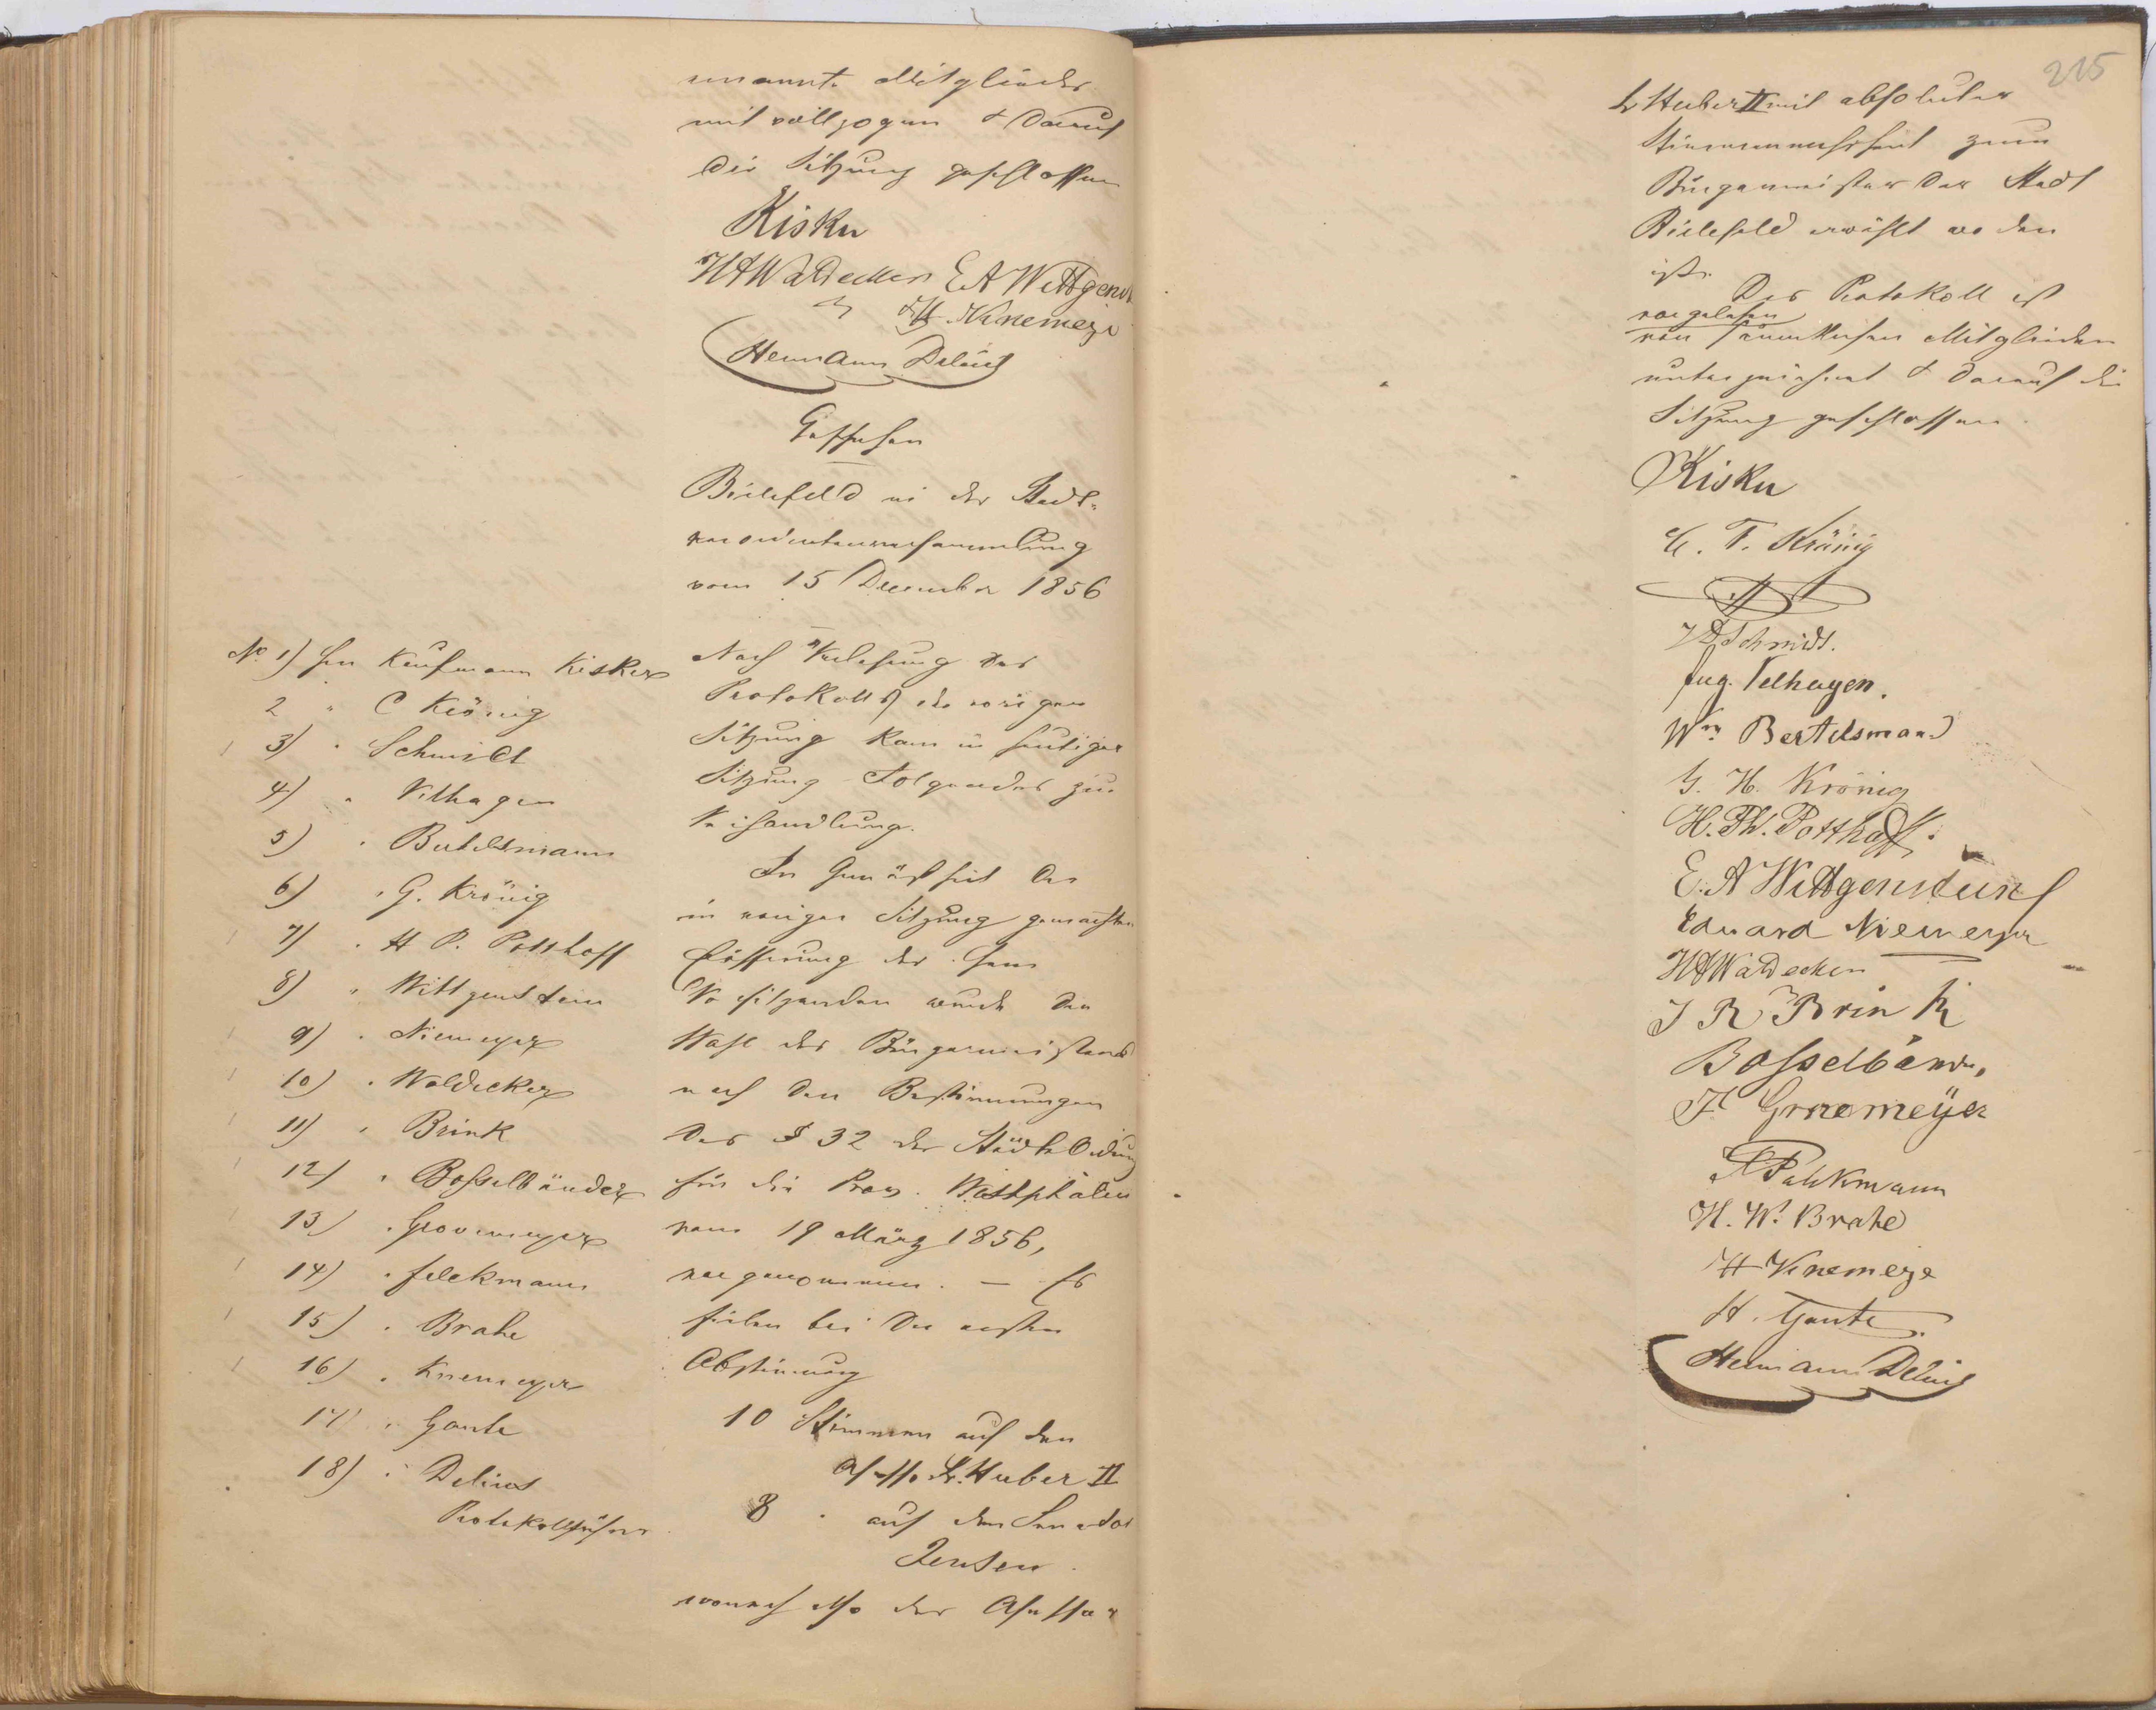 ernannte Mitglieder
mit vollzogen & darauf
die Sitzung geschlossen
Kisker
HA Waldecker E A Wittgenst
H Knemeyer
Hermann Delius
Geschehen
Bielefeld in der Stadt-
verordnetenversammlung
vom 15 December 1856
No. 1) Herr Kaufmann Kisker
2 " C Krönig
3) " Schmidt
4) " Velhagen
5) " Bertelsmann
6) " G. Krönig
7) " H P. Potthoff
8) " Wittgenstein
9) " Niemeyer
10) " Waldecker
11) " Brink
12) " Bosselbänder
13) " Grovemeyer
14) " Feldkmann
15) " Brake
16) " Knemeyer
17) " Gante
18) " Delius
Protokollführer
Nach Verlesung des
Protokolls der vorigen
Sitzung kam in heutiger
Sitzung Folgendes zur
Verhandlung.
In Gemäßheit der
in voriger Sitzung gemachten
Eröffnung des Herrn
Vorsitzenden wurde die
Wahl des Bürgermeisters
nach den Bestimmungen
des § 32 der Städte Ordnung
für die Prov. Westphalen
vom 19 März 1856,
vorgenommen. — Es
fielen bei der ersten
Abstimmung
10 Stimmen auf den
Assessor Dr. Huber II
8 " auf den Senator
Jensen.
wonach also der Assessor
215
Dr Huber II mit absoluter
Stimmenmehrheit zum
Bürgermeister der Stadt
Bielefeld erwählt worden
ist.
Das Protokoll ist
vorgelesen
von sämmtlichen Mitgliedern
unterzeichnet & darauf die
Sitzung geschlossen.
Kisker
C. F. Krönig
Schmidt.
Aug. Velhagen.
Wm Bertelsmann
G. H. Krönig
H. Ph. Potthoff.
E. A Wittgenstein
Eduard Niemeyer
HA Waldecker
J R Brink
Bosselbänder,
F Grovemeyer
H. W. Brake
H Knemeyer
H. Gante.
Hermann Delius